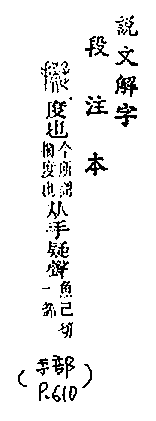 說文解字
段注本
擬 度也 今所謂揣度也 从手疑聲 魚己切 一部
(手部
P.610)